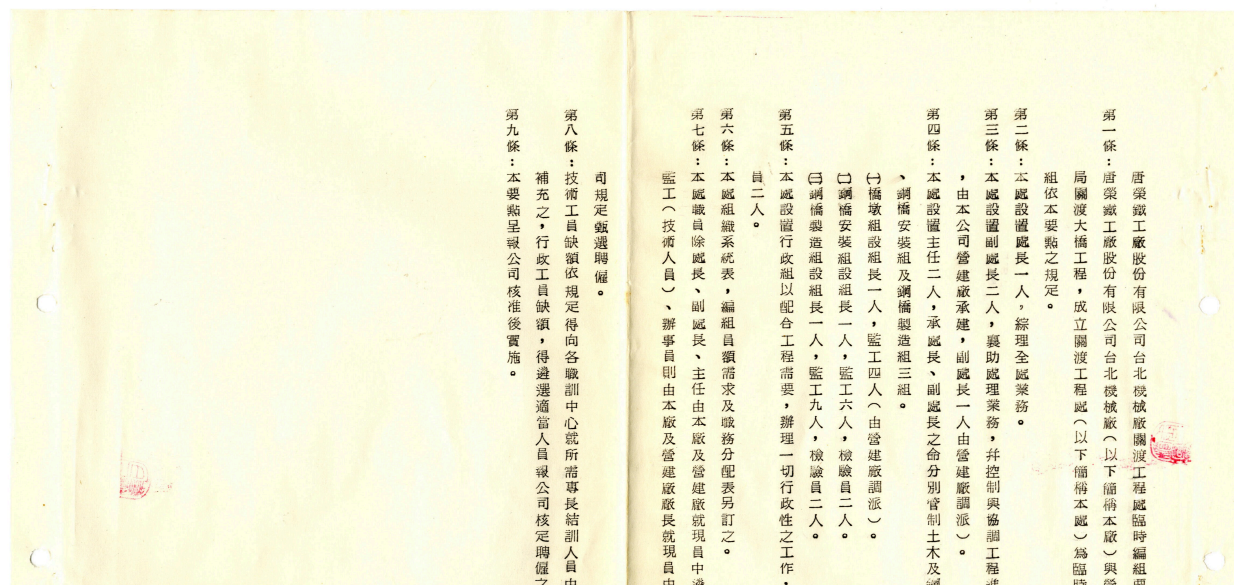 唐榮鐵工廠股份有限公司台北機械廠關渡工程處臨時編組要
第一條:唐榮鐵工廠股份有限公司台北機械廠(以下簡稱本廠)與
局關渡大橋工程,成立關渡工程處(以下簡稱本處)為臨時
組依本要點之規定。
第二條:本處設置處長一人,綜理全處業務。
第三條:本處設置副處長二人,襄助處理業務,幷控制與協調工程
,由本公司營建廠承建,副處長一人由營建廠調派)。
第四條:本處設置主任二人,承處長、副處長之命分別管制土木及
、鋼橋安裝組及鋼橋製造組三組。
㈠橋墩組設組長一人,監工四人(由營建廠調派)。
㈡鋼橋安裝組設組長一人,監工六人,檢驗員二人。
㈢鋼橋製造組設組長一人,監工九人,檢驗員二人。
第五條:本處設置行政組以配合工程需要,辦理一切行政性之工作,
員二人。
第六條:本處組織系統表,編組員額需求及職務分配表另訂之。
第七條:本處職員除處長、副處長、主任由本廠及營建廠就現員中
監工(技術人員)、辦事員則由本廠及營建廠廠長就現員
司規定甄選聘僱。
第八條:技術工員缺額依規定得向各職訓中心就所需專長結訓人員
補充之,行政工員缺額,得遴選適當人員報公司核定聘僱之
第九條:本要點呈報公司核准後實施。